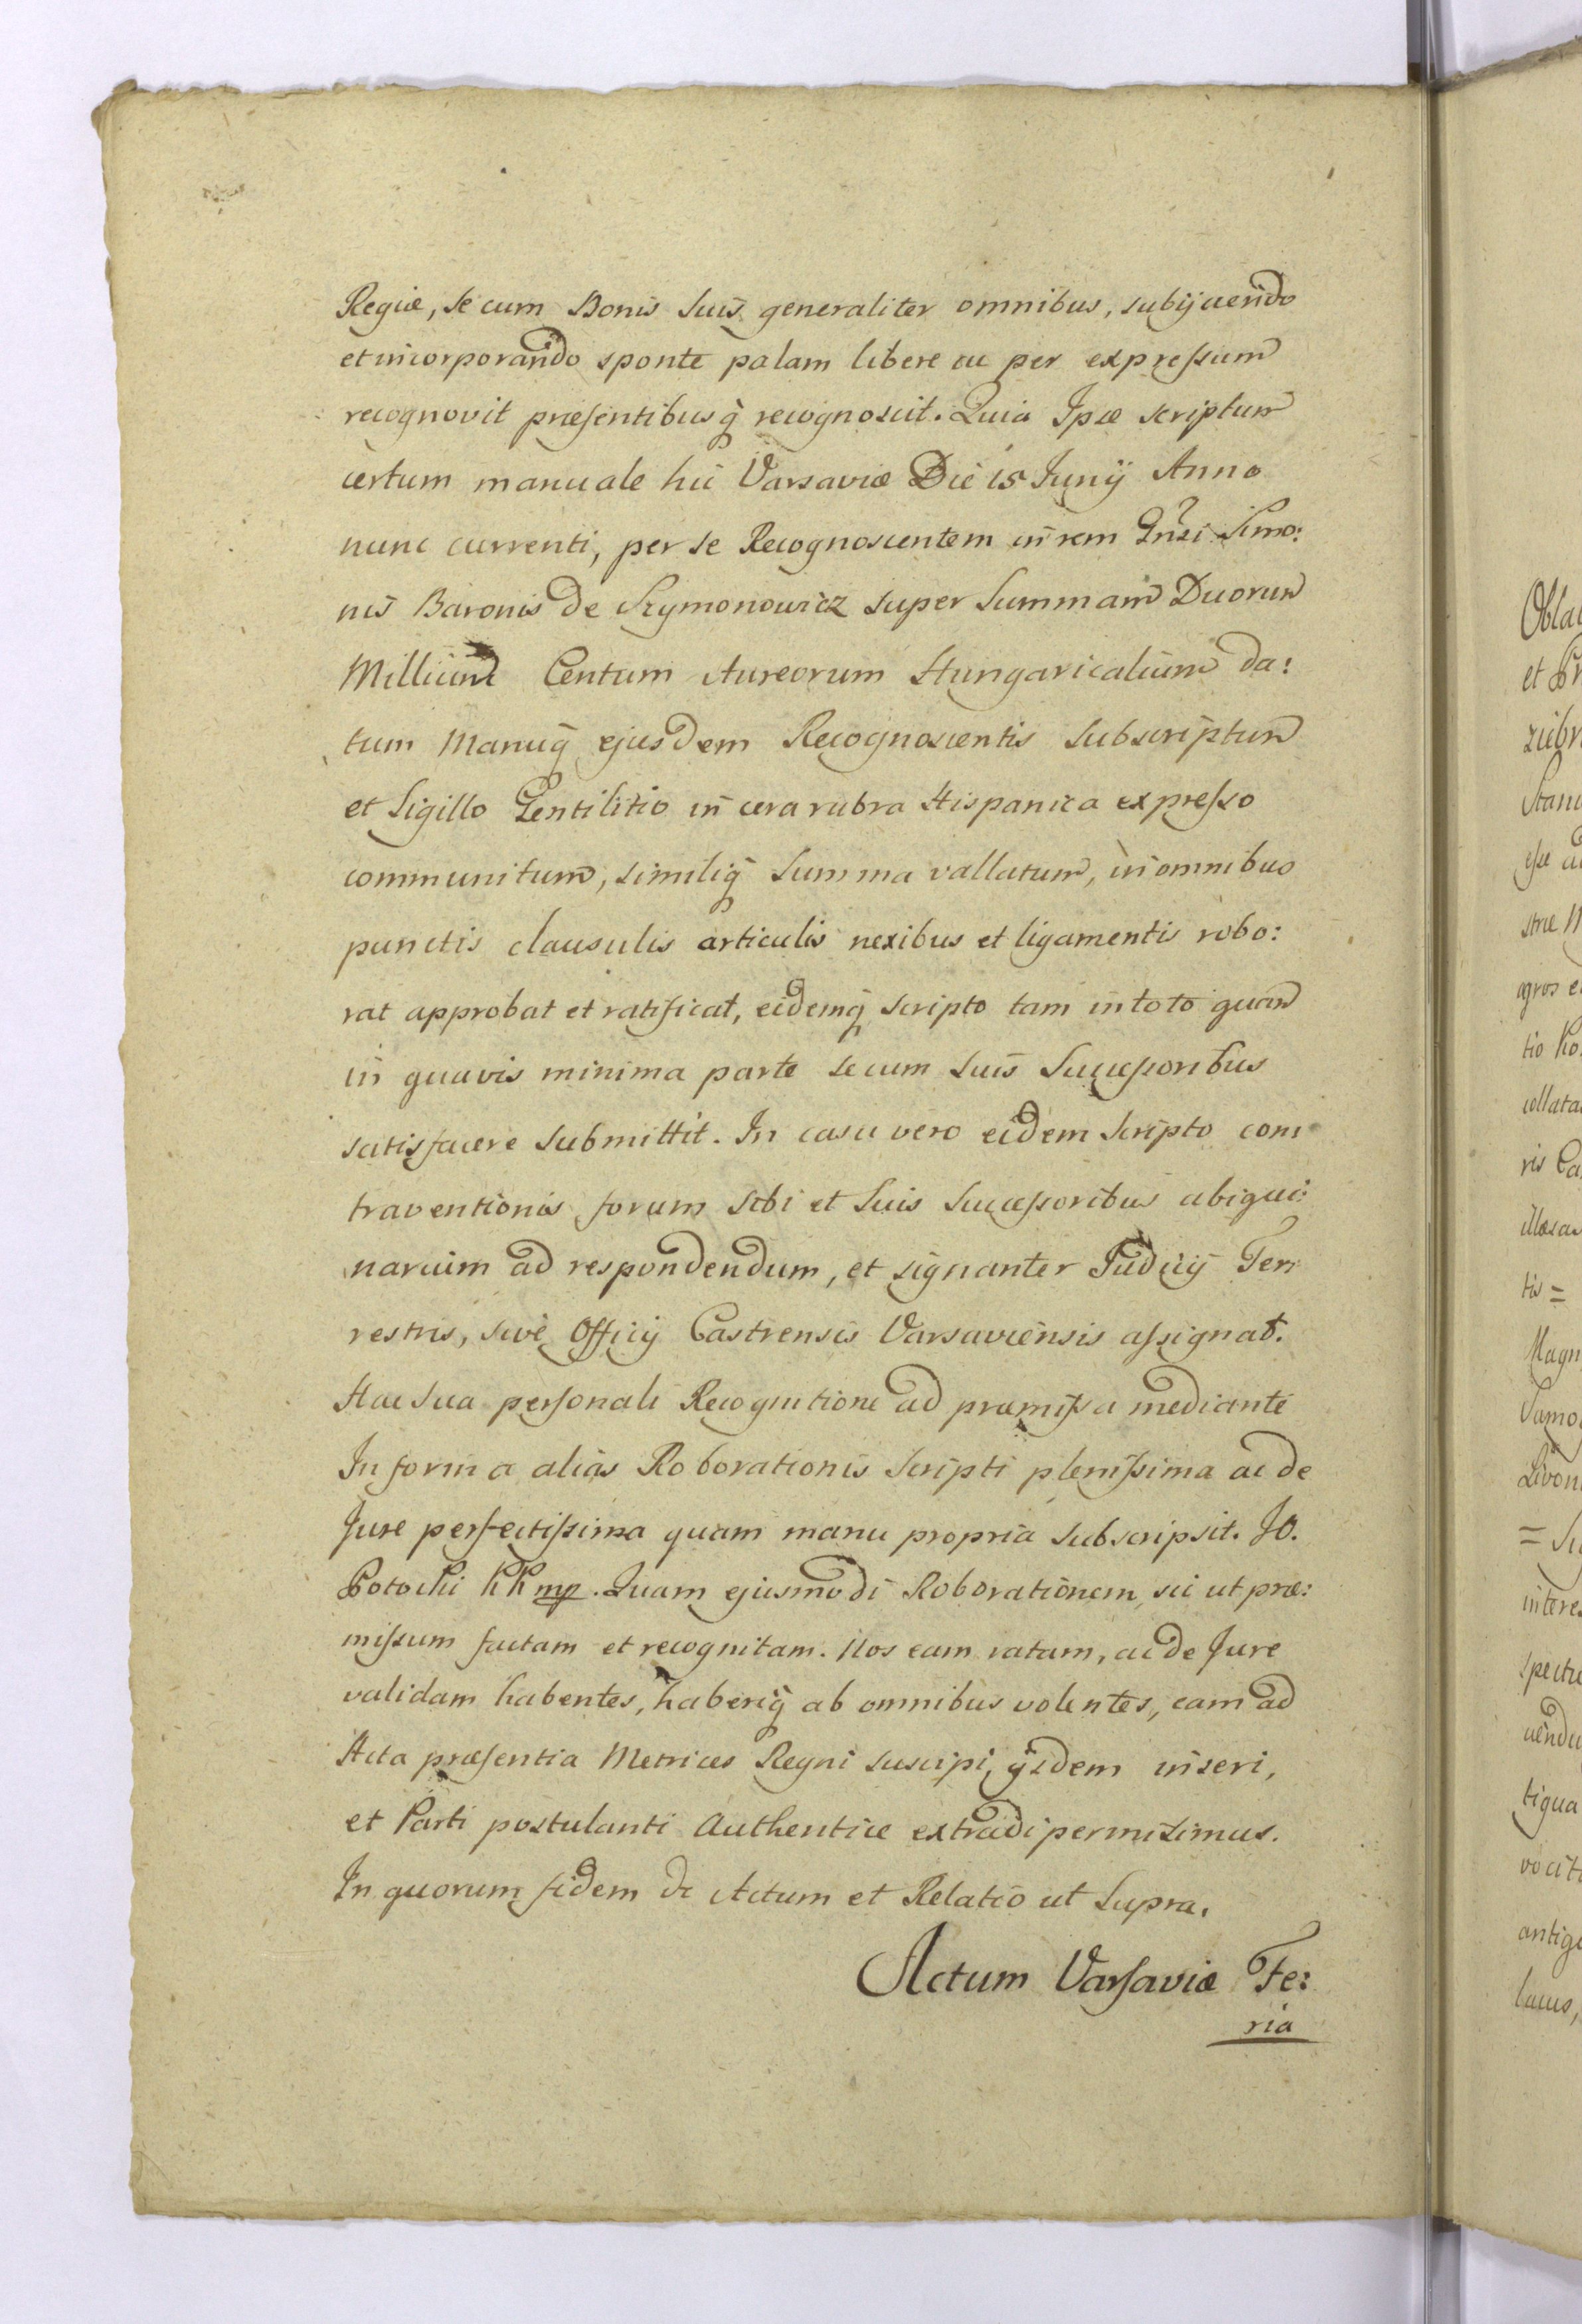 Regiæ, se cum Bonis Suis generaliter omnibus, subijciendo
et incorporando sponte palam libere ac per expreſsum
recognovit præſentibusq̃ recognoscit. Quia Ipse scriptum
certum manuale hic Varsaviæ Die 15 Junij Anno
nunc currenti, per se Recognoscentem in rem Gnsi Simo:
nis Baronis de Szymonowicz super Summam Duorum
Millium Centum Aureorum Hungaricalium da:
tum Manuq̃ ejusdem Recognoscentis Subscriptum
et Sigillo Gentilitio in cera rubra Hispanica expreſso
communitum, similiq̃ Summa vallatum, in omnibus
punctis clausulis articulis nexibus et ligamentis robo:
rat approbat et ratificat, eidemq̃ scripto tam in toto quam
in quavis minima parte se cum Suis Succeſsoribus
satisfacere Submittit. In casu vero eidem Scripto con
traventionis forum Sibi et Suis Succeſsoribus ubiqui:
narium ad respondendum, et signanter Judicij Ter
restris, sive Officij Castrensis Varsaviensis aſsignat.
Hac Sua perſonali Recognitione ad præmiſsa mediante
In forma alias Roborationis Scripti pleniſsima ac de
Jure perfectiſsima quam manu propria Subscripsit. JO.
Potocki KK mp. Quam ejusmodi Roborationem sic ut præ:
miſsum factam et recognitam. Nos eam ratam, ac de Jure
validam habentes, haberiq̃ ab omnibus volentes, eam ad
Acta præſentia Metrices Regni suscipi, ijsdem inseri,
et Parti postulanti Authentice extradi permisimus.
In quorum fidem &c Actum et Relatio ut Supra.
Actum Varſaviæ Fe:
ria